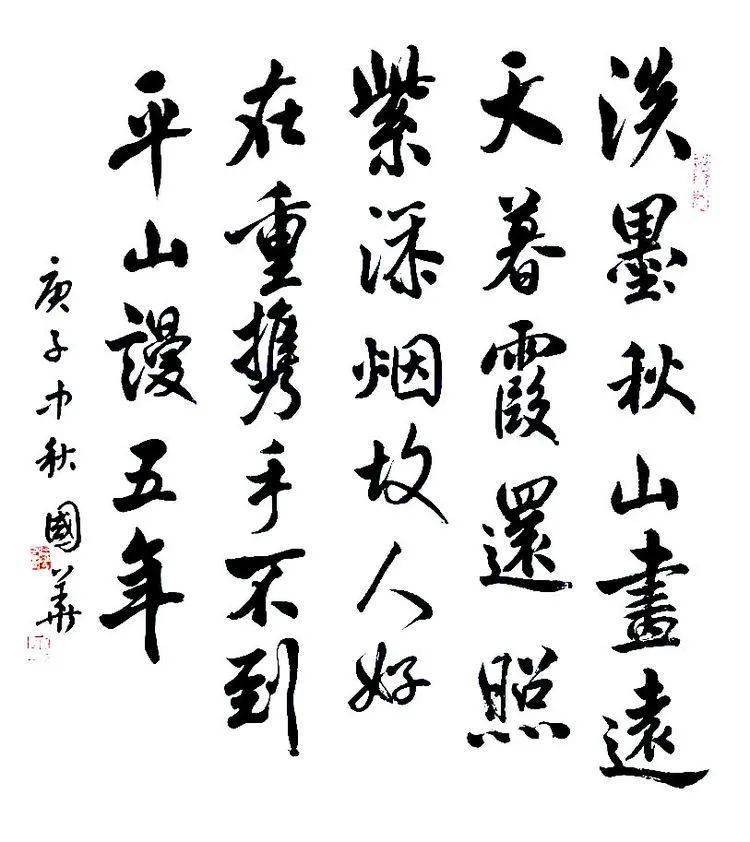 淡墨秋山畫遠
天暮霞還照
紫添烟故人好
在重携手不到
平山謾五年
庚子中秋國華